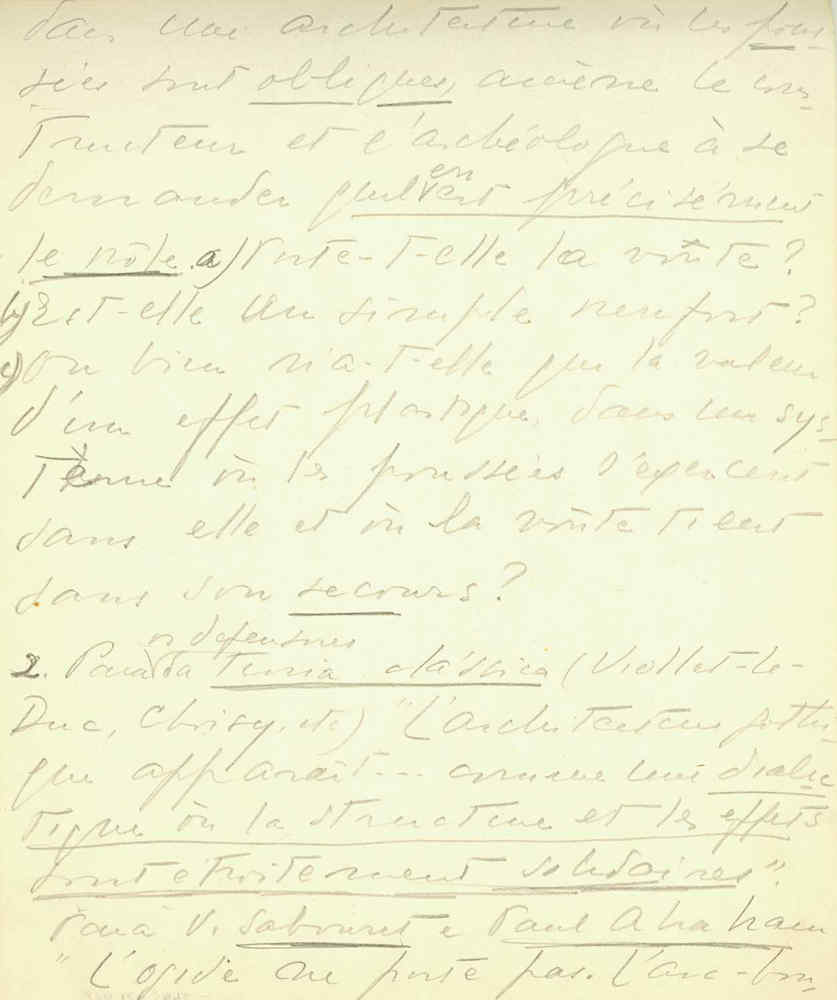 dans une architecture où les pous-
sées sont obliques, amène le cons-
tructeur et l'archéologue à se
demander quel en est précisément
le rôle. a) Porte-t-elle la voûte?
b) Est-elle un simple renfort?
c) Ou bien n'a-t-elle que la valeur
d'un effet plastique, dans un sys-
tème où les poussées s'exercent
sans elle et où la voûte tient
sans son secours?
os defensores
2. Para da teoria clássica (Viollet-le-
Duc, Choisy, etc) "L'architecture gothi-
que apparaît... comme une dialec-
tique où la structure et les effets
sont étroitement solidaires".
Para V. Sabouret e Paul Abraham
"L'ogive ne porte pas. L'arc-bou-